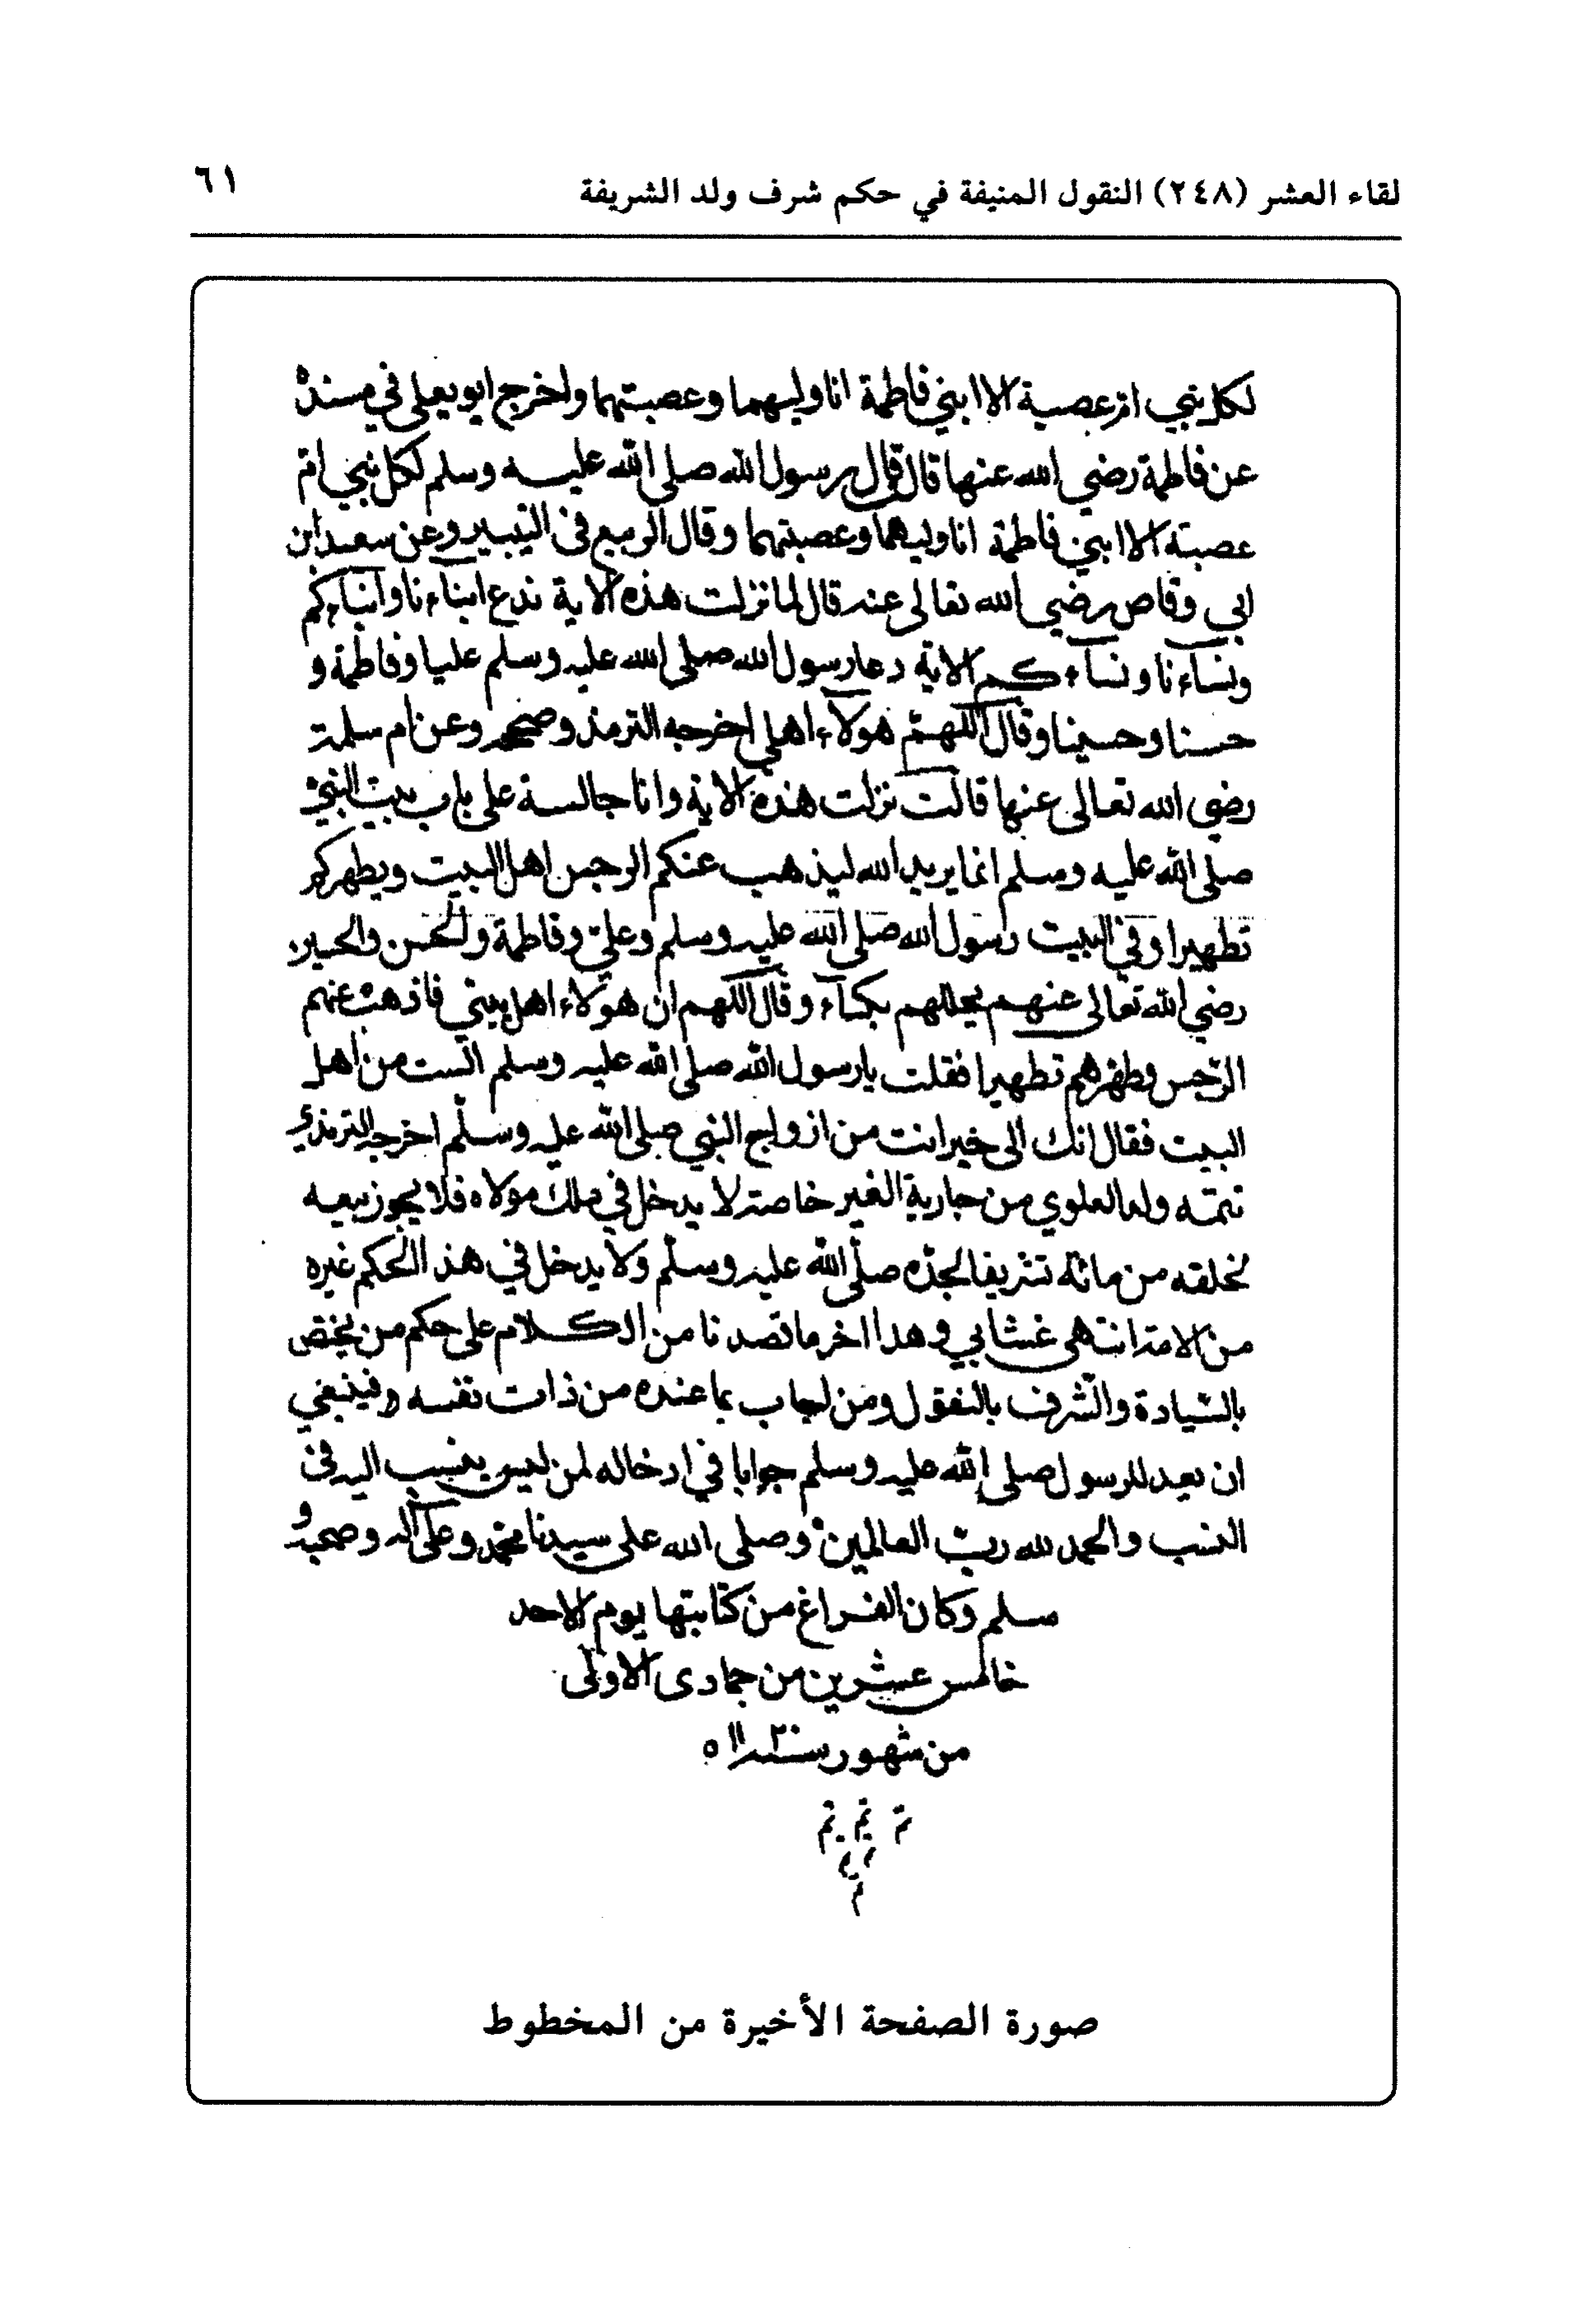 لقاء العشر (٢٤٨) النقول المنيفة في حكم شرف ولد الشريفة
٦١
لكل بني ام عصبة الا ابني فاطمة انا وليهما وعصبتهما واخرج ابو يعلي في مسنده
عن فاطمة رضي الله عنها قال قال رسول الله صلى الله عليه وسلم لكل بني ام
عصبة الا ابني فاطمة انا وليهما وعصبتهما وقال الربيع في التيسير وعن سعد ابن
ابي وقاص رضي الله تعالى عنه قال لما نزلت هذه الاية ندع ابناءنا وابناءكم
ونساءنا ونساءكم الاية دعا رسول الله صلى الله عليه وسلم عليا وفاطمة و
حسنا وحسينا وقال اللهم هولاء اهلي اخرجه الترمذ وصححه وعن ام سلمة
رضي الله تعالى عنها قالت نزلت هذه الاية وانا جالسة على باب بيت النبي
صلى الله عليه وسلم انما يريد الله ليذهب عنكم الرجس اهل البيت ويطهركم
تطهيرا وفي البيت رسول الله صلى الله عليه وسلم وعلي وفاطمة والحسن والحسين
رضي الله تعالى عنهم يجللهم بكساء وقال اللهم ان هولاء اهل بيتي فاذهب عنهم
الرجس وطهرهم تطهيرا فقلت يا رسول الله صلى الله عليه وسلم الست من اهل
البيت فقال انك الى خير انت من ازواج النبي صلى الله عليه وسلم اخرجه الترمذي
تتمة ولد العلوي من جارية الغير خاصة لا يدخل في ملك مولاه فلا يجوز بيعه
لخلقه من مائه تشريفا لجده صلى الله عليه وسلم ولا يدخل في هذا الحكم غيره
من الامة انتهى وهذا اخر ما قصدنا من الكلام على حكم من يختص
بالسيادة والشرف بالنقول ومن اجاب بما عنده من ذات نفسه فينبغي
ان يعد للرسول صلى الله عليه وسلم جوابا في ادخاله لمن ليس ينسب اليه في
النسب والحمد لله رب العالمين وصلى الله على سيدنا محمد وعلى اله وصحبه و
سلم وكان الفراغ من كتابتها يوم الاحد
خامس عشرين من جمادى الاولى
من شهور سنة
تم تم تم
صورة الصفحة الأخيرة من المخطوط